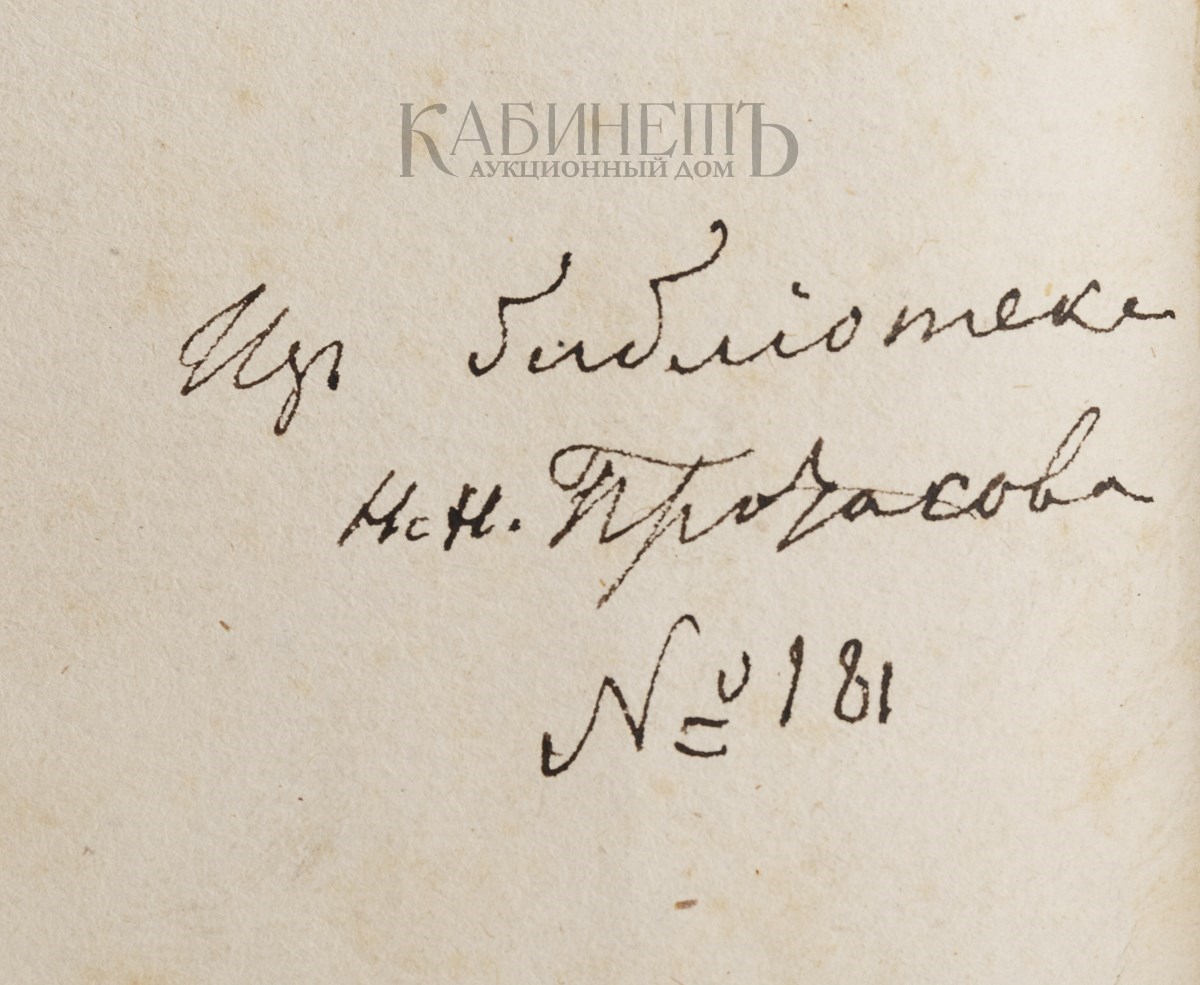 КАБИНЕТЪ
АУКЦИОННЫЙ ДОМ
Изъ библіотеки
Н. Н. Протасова
№ 181